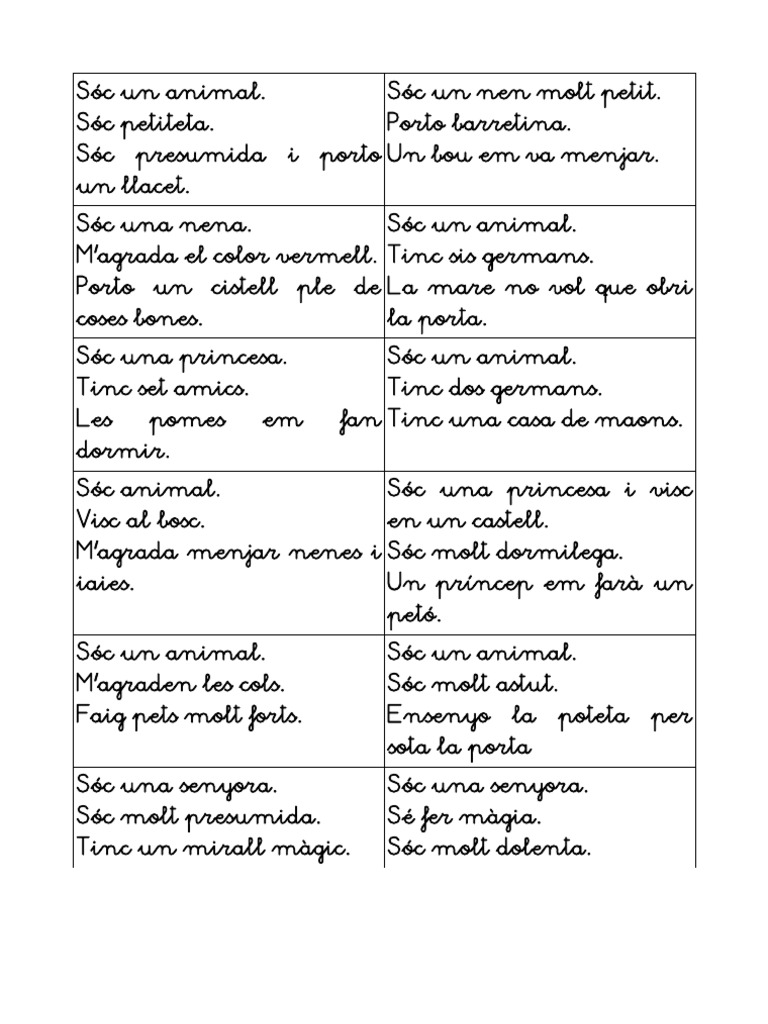 Sóc un animal.
Sóc petiteta.
Sóc presumida i porto
un llacet.
Sóc un nen molt petit.
Porto barretina.
Un bou em va menjar.
Sóc una nena.
M'agrada el color vermell.
Porto un cistell ple de
coses bones.
Sóc un animal.
Tinc sis germans.
La mare no vol que obri
la porta.
Sóc una princesa.
Tinc set amics.
Les pomes em fan
dormir.
Sóc un animal.
Tinc dos germans.
Tinc una casa de maons.
Sóc animal.
Visc al bosc.
M'agrada menjar nenes i
iaies.
Sóc una princesa i visc
en un castell.
Sóc molt dormilega.
Un príncep em farà un
petó.
Sóc un animal.
M'agraden les cols.
Faig pets molt forts.
Sóc un animal.
Sóc molt astut.
Ensenyo la poteta per
sota la porta
Sóc una senyora.
Sóc molt presumida.
Tinc un mirall màgic.
Sóc una senyora.
Sé fer màgia.
Sóc molt dolenta.